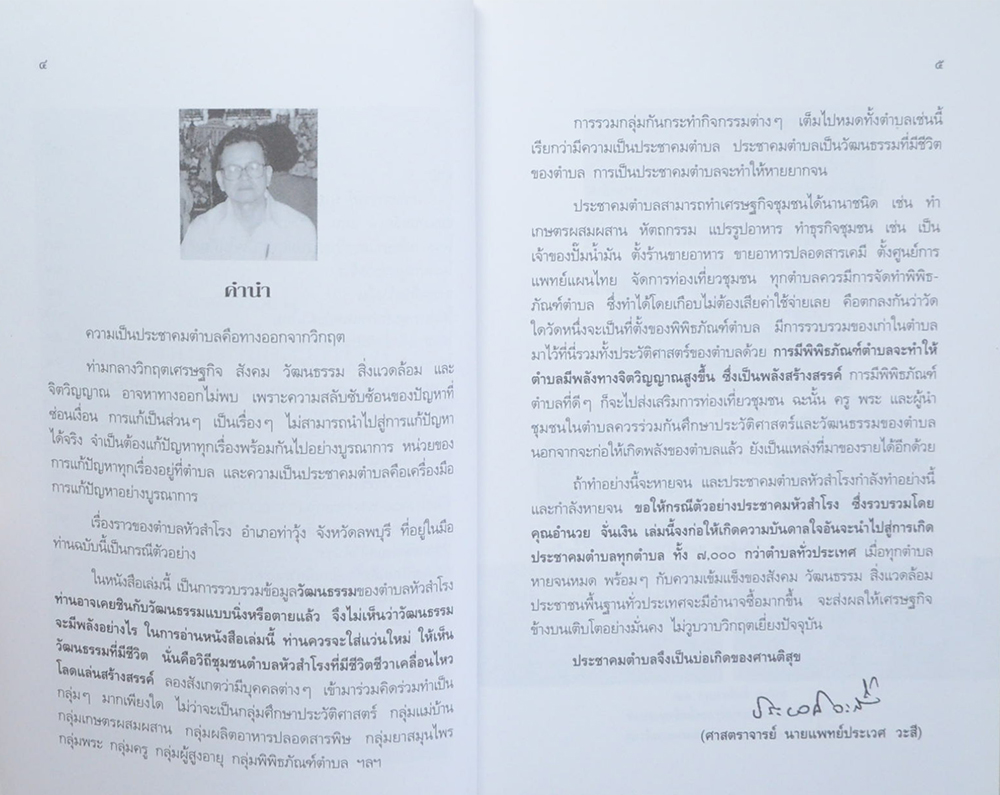 ๔
คำนำ
ความเป็นประชาคมตำบลคือทางออกจากวิกฤต
ท่ามกลางวิกฤตเศรษฐกิจ สังคม วัฒนธรรม สิ่งแวดล้อม และ
จิตวิญญาณ อาจหาทางออกไม่พบ เพราะความสลับซับซ้อนของปัญหาที่
ซ่อนเงื่อน การแก้เป็นส่วนๆ เป็นเรื่องๆ ไม่สามารถนำไปสู่การแก้ปัญหา
ได้จริง จำเป็นต้องแก้ปัญหาทุกเรื่องพร้อมกันไปอย่างบูรณาการ หน่วยของ
การแก้ปัญหาทุกเรื่องอยู่ที่ตำบล และความเป็นประชาคมตำบลคือเครื่องมือ
การแก้ปัญหาอย่างบูรณาการ
เรื่องราวของตำบลหัวสำโรง อำเภอท่าวุ้ง จังหวัดลพบุรี ที่อยู่ในมือ
ท่านฉบับนี้เป็นกรณีตัวอย่าง
ในหนังสือเล่มนี้ เป็นการรวบรวมข้อมูลวัฒนธรรมของตำบลหัวสำโรง
ท่านอาจเคยชินกับวัฒนธรรมแบบนิ่งหรือตายแล้ว จึงไม่เห็นว่าวัฒนธรรม
จะมีพลังอย่างไร ในการอ่านหนังสือเล่มนี้ ท่านควรจะใส่แว่นใหม่ ให้เห็น
วัฒนธรรมที่มีชีวิต นั่นคือวิถีชุมชนตำบลหัวสำโรงที่มีชีวิตชีวาเคลื่อนไหว
โลดแล่นสร้างสรรค์ ลองสังเกตว่ามีบุคคลต่างๆ เข้ามาร่วมคิดร่วมทำเป็น
กลุ่มๆ มากเพียงใด ไม่ว่าจะเป็นกลุ่มศึกษาประวัติศาสตร์ กลุ่มแม่บ้าน
กลุ่มเกษตรผสมผสาน กลุ่มผลิตอาหารปลอดสารพิษ กลุ่มยาสมุนไพร
กลุ่มพระ กลุ่มครู กลุ่มผู้สูงอายุ กลุ่มพิพิธภัณฑ์ตำบล ฯลฯ
๕
การรวมกลุ่มกันกระทำกิจกรรมต่างๆ เต็มไปหมดทั้งตำบลเช่นนี้
เรียกว่ามีความเป็นประชาคมตำบล ประชาคมตำบลเป็นวัฒนธรรมที่มีชีวิต
ของตำบล การเป็นประชาคมตำบลจะทำให้หายยากจน
ประชาคมตำบลสามารถทำเศรษฐกิจชุมชนได้นานาชนิด เช่น ทำ
เกษตรผสมผสาน หัตถกรรม แปรรูปอาหาร ทำธุรกิจชุมชน เช่น เป็น
เจ้าของปั๊มน้ำมัน ตั้งร้านขายอาหาร ขายอาหารปลอดสารเคมี ตั้งศูนย์การ
แพทย์แผนไทย จัดการท่องเที่ยวชุมชน ทุกตำบลควรมีการจัดทำพิพิธ-
ภัณฑ์ตำบล ซึ่งทำได้โดยเกือบไม่ต้องเสียค่าใช้จ่ายเลย คือตกลงกันว่าวัด
ใดวัดหนึ่งจะเป็นที่ตั้งของพิพิธภัณฑ์ตำบล มีการรวบรวมของเก่าในตำบล
มาไว้ที่นี่รวมทั้งประวัติศาสตร์ของตำบลด้วย การมีพิพิธภัณฑ์ตำบลจะทำให้
ตำบลมีพลังทางจิตวิญญาณสูงขึ้น ซึ่งเป็นพลังสร้างสรรค์ การมีพิพิธภัณฑ์
ตำบลที่ดีๆ ก็จะไปส่งเสริมการท่องเที่ยวชุมชน ฉะนั้น ครู พระ และผู้นำ
ชุมชนในตำบลควรร่วมกันศึกษาประวัติศาสตร์และวัฒนธรรมของตำบล
นอกจากจะก่อให้เกิดพลังของตำบลแล้ว ยังเป็นแหล่งที่มาของรายได้อีกด้วย
ถ้าทำอย่างนี้จะหายจน และประชาคมตำบลหัวสำโรงกำลังทำอย่างนี้
และกำลังหายจน ขอให้กรณีตัวอย่างประชาคมหัวสำโรง ซึ่งรวบรวมโดย
คุณอำนวย จั่นเงิน เล่มนี้จงก่อให้เกิดความบันดาลใจอันจะนำไปสู่การเกิด
ประชาคมตำบลทุกตำบล ทั้ง ๗,๐๐๐ กว่าตำบลทั่วประเทศ เมื่อทุกตำบล
หายจนหมด พร้อมๆ กับความเข้มแข็งของสังคม วัฒนธรรม สิ่งแวดล้อม
ประชาชนพื้นฐานทั่วประเทศจะมีอำนาจซื้อมากขึ้น จะส่งผลให้เศรษฐกิจ
ข้างบนเติบโตอย่างมั่นคง ไม่วูบวาบวิกฤตเยี่ยงปัจจุบัน
ประชาคมตำบลจึงเป็นบ่อเกิดของศานติสุข
(ศาสตราจารย์ นายแพทย์ประเวศ วะสี)